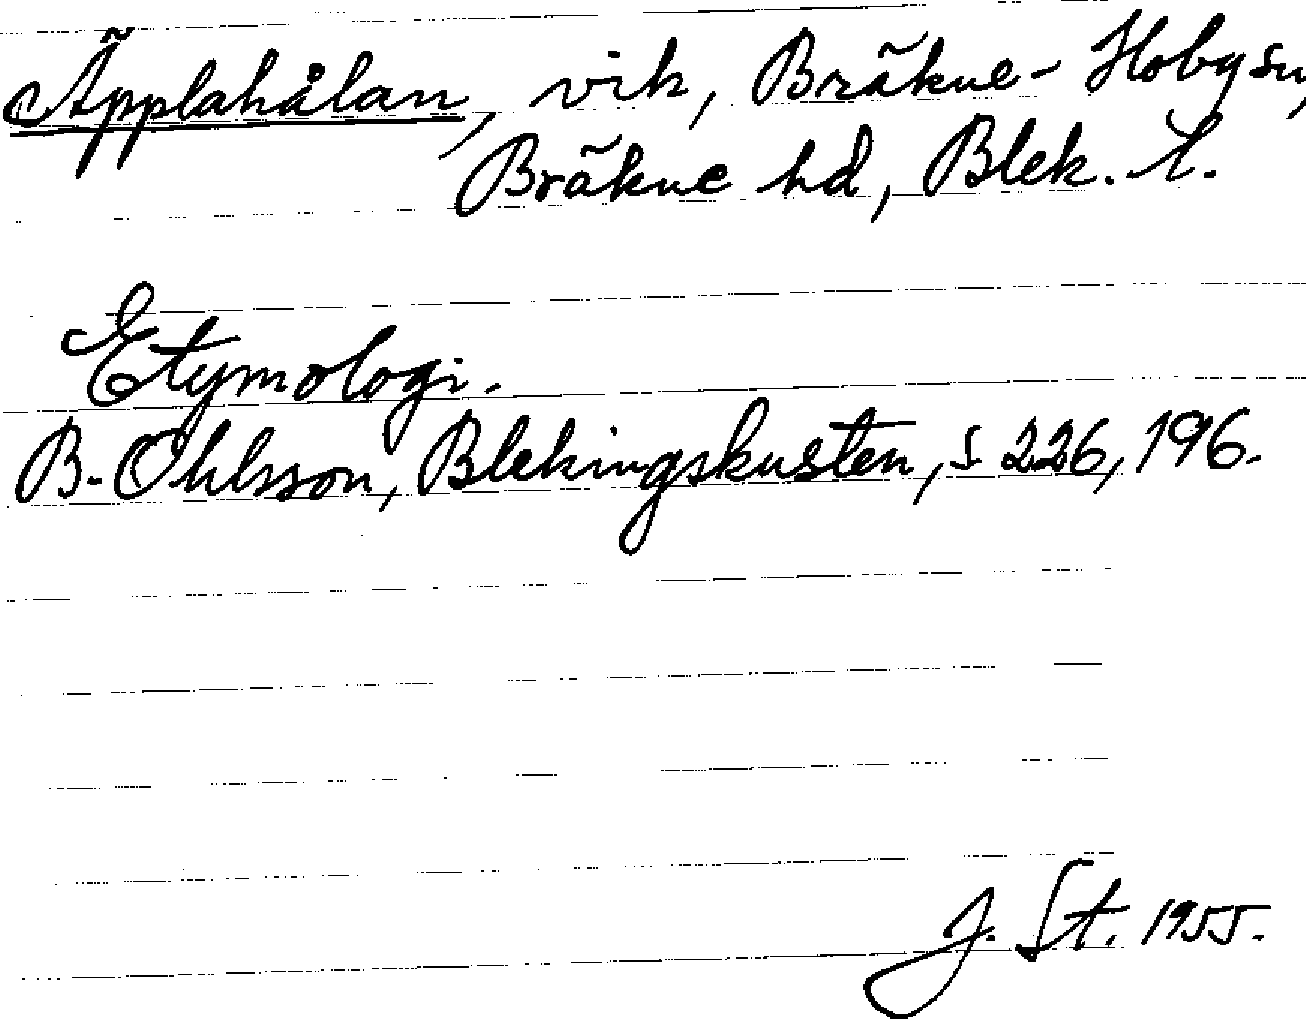 Äpplahålan, vik, Bräkne-Hoby sn,
Bräkne hd, Blek. l.
Etymologi.
B. Ohlsson, Blekingskusten, s 226, 196.
J. St. 1955.